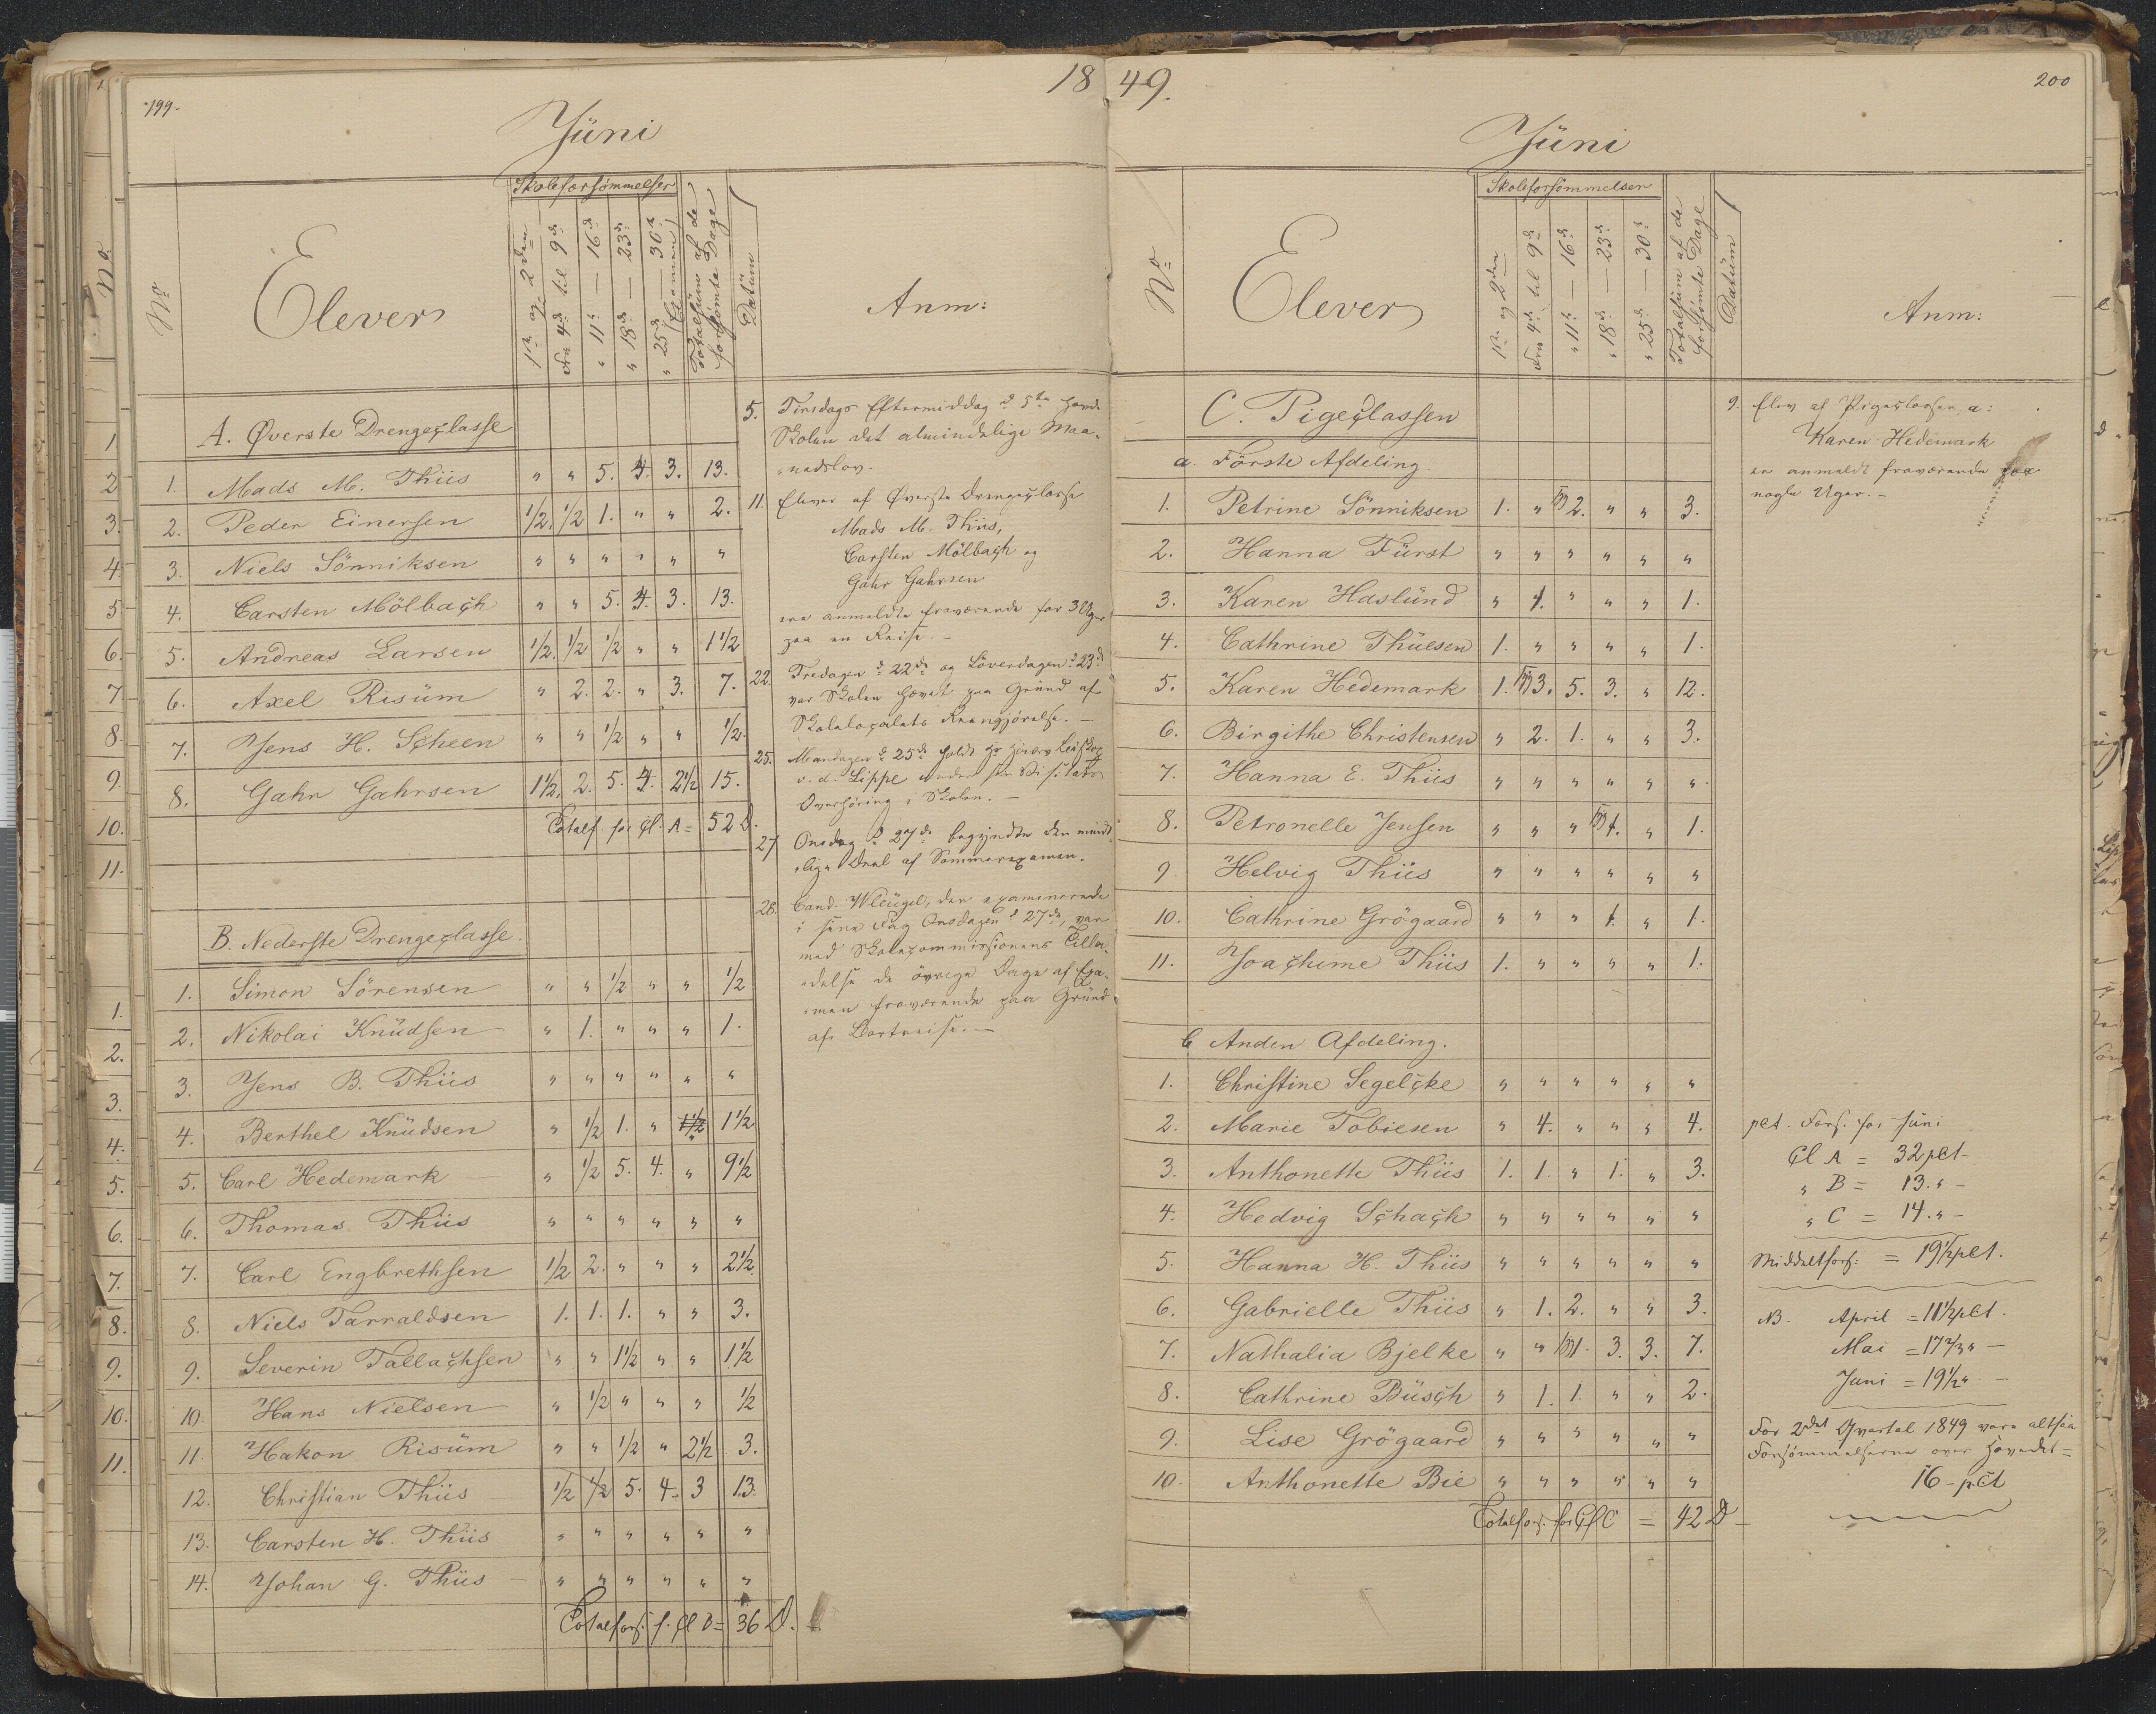 199.
1849.
200
Jüni
No
Elever
Skoleforsømmelser
1ste og 2den
Fra 4de til 9de
" 11te — 16de
" 18de — 23de
" 25de — 30te
(Examen)
Totalsum af de
forsømte Dage
Datüm
Anm:
A. Øverste Drengeclasse
1. Mads M. Thiis " " 5. 4. 3. 13.
2. Peder Einersen 1/2. 1/2 1. " " 2.
3. Niels Sönniksen " " " " " "
4. Carsten Mölbach " " 5. 4. 3. 13.
5. Andreas Larsen 1/2. 1/2 1/2 " " 1 1/2
6. Axel Risüm " 2. 2. " 3. 7.
7. Jens H. Scheen " " 1/2 " " 1/2.
8. Gahr Gahrsen 1 1/2. 2. 5. 4. 2 1/2 15.
Totalf. for Cl. A = 52 D.
B. Nederste Drengeclasse.
1. Simon Sörensen " " 1/2 " " 1/2
2. Nikolai Knüdsen " 1. " " " 1.
3. Jens B. Thiis " " " " " "
4. Berthel Knüdsen " 1/2 1. " 1 1/2 1 1/2
5. Carl Hedemark " 1/2 5. 4. " 9 1/2
6. Thomas Thiis " " " " " "
7. Carl Engbrethsen 1/2 2. " " " 2 1/2
8. Niels Tarraldsen 1. 1. 1. " " 3.
9. Severin Tallachsen " " 1 1/2 " " 1 1/2
10. Hans Nielsen " 1/2 " " " 1/2
11. Hakon Risüm " " 1/2 " 2 1/2 3.
12. Christian Thiis 1/2 1/2 5. 4. 3 13.
13. Carsten H. Thiis " " " " " "
14. Johan G. Thiis " " " " " "
Totalfors. f. Cl B = 36 D.
5. Tirsdags Eftermiddag d 5te havde
Skolen det almindelige Maa-
nedslov.
11. Elever af Øverste Drengeclasse
Mads M. Thiis,
Carsten Mölbach og
Gahr Gahrsen
ere anmeldte fraværende for 3 Uger
paa en Reise. –
22. Fredagen d 22de og Löverdagen d 23de
var Skolen hævet paa Gründ af
Skolelocalets Reengjørelse. –
25. Mandagen d 25de holdt Hr Biskop
v. d. Lippe under sin Visitats
Overhöring i Skolen. –
27 Onsdag d 27de begyndte den münd-
lige Deel af Sommerexamen.
28. Cand. Wleügel, der examinerede
i sine Fag Onsdagen d 27de, var
med Skolecommissionens Tilla-
delse de övrige Dage af Exa-
men fraværende paa Gründ
af Bortreise. –
Jüni
No
Elever
Skoleforsömmelsen
1ste og 2den
Fra 4de til 9de
" 11te — 16de
" 18de — 23de
" 25de — 30te
Totalsum af de
forsömte Dage
Datüm
Anm:
C. Pigeclassen
a. Förste Afdeling.
1. Petrine Sönniksen 1. " 2. " " 3.
2. Hanna Fürst " " " " " "
3. Karen Haslünd " 1. " " " 1.
4. Cathrine Thüesen 1. " " " " 1.
5. Karen Hedemark 1. 3. 5. 3. " 12.
6. Birgithe Christensen " 2. 1. " " 3.
7. Hanna E. Thiis " " " " " "
8. Petronelle Jensen " " " 1. " 1.
9. Helvig Thiis " " " " " "
10. Cathrine Grögaard " " " 1. " 1.
11. Joachime Thiis 1. " " " " 1.
b Anden Afdeling.
1. Christine Segelcke " " " " " "
2. Marie Tobiesen " 4. " " " 4.
3. Anthonette Thiis 1. 1. " 1. " 3.
4. Hedvig Schach " " " " " "
5. Hanna H. Thiis " " " " " "
6. Gabrielle Thiis " 1. 2. " " 3.
7. Nathalia Bjelke " " 1. 3. 3. 7.
8. Cathrine Büsch " 1. 1. " " 2.
9. Lise Grögaard " " " " " "
10. Anthonette Bie " " " " " "
Totalfors. for Cl C = 42 D
9. Elev af Pigeclassen, a:
Karen Hedemark
er anmeldt fraværende paa
nogle Uger. –
pCt. Fors. for Jüni
Cl A = 32 pCt –
" B = 13. " –
" C = 14. " –
Middelfors: = 19 1/2 pCt.
NB. April = 11 1/2 pCt.
Mai = 17 2/3 " –
Juni = 19 1/2 " –
For 2det Qvartal 1849 vare altsaa
Forsömmelserne over Hovedet =
16 – pCt